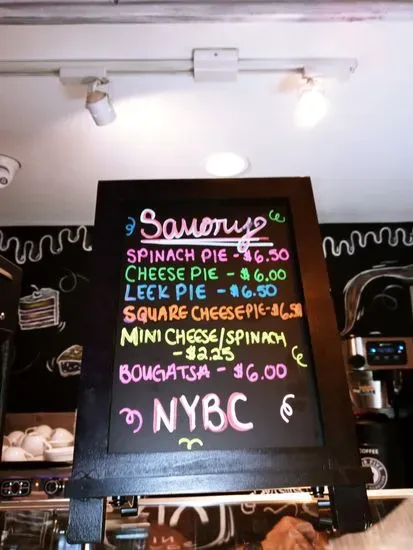 Savory
SPINACH PIE - $6.50
CHEESE PIE - $6.00
LEEK PIE - $6.50
SQUARE CHEESE PIE - $6.50
MINI CHEESE/SPINACH
- $2.25
BOUGATSA - $6.00
NYBC
COFFEE